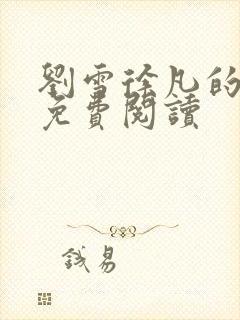 劉雪徐凡的
免費閱讀
錢易